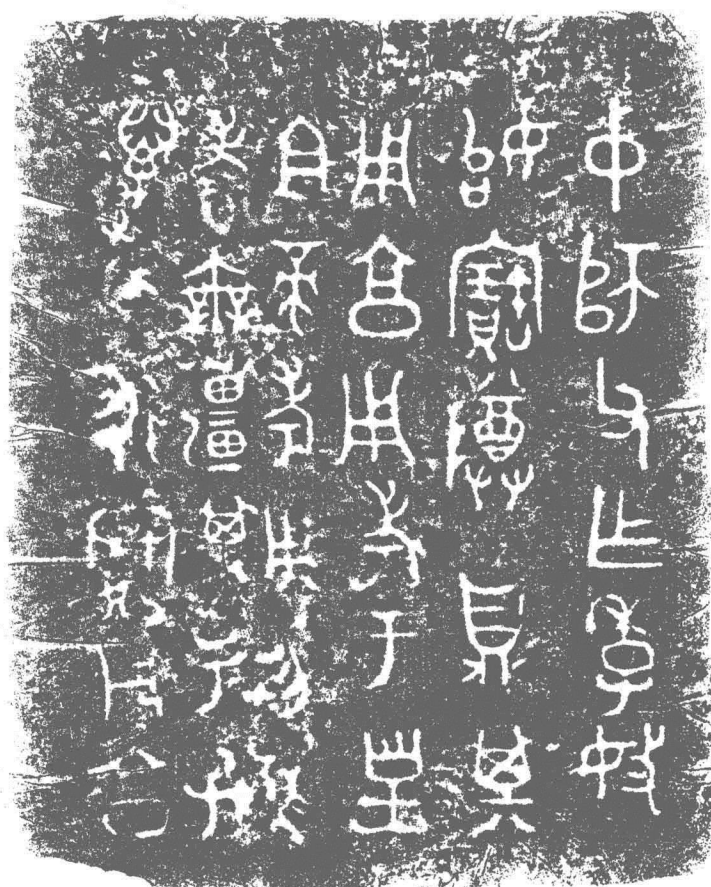 中師父乍季妓
始寶尊鼎其
用享用孝于皇
且帝考用易眉
壽無疆其子孫
萬年永寶用享